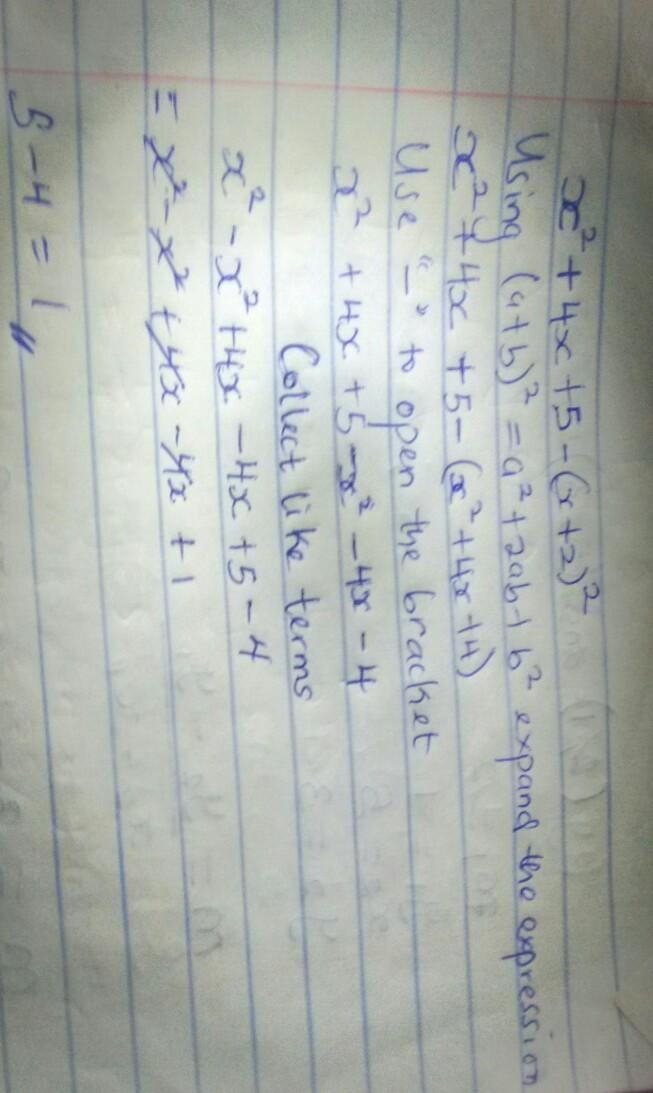 x² + 4x + 5 - (x + 2)²
Using (a+b)² = a² + 2ab + b² expand the expression
x² + 4x + 5 - (x² + 4x + 4)
Use "-" to open the bracket
x² + 4x + 5 - x² - 4x - 4
Collect like terms
x² - x² + 4x - 4x + 5 - 4
= x² - x² + 4x - 4x + 1
5 - 4 = 1